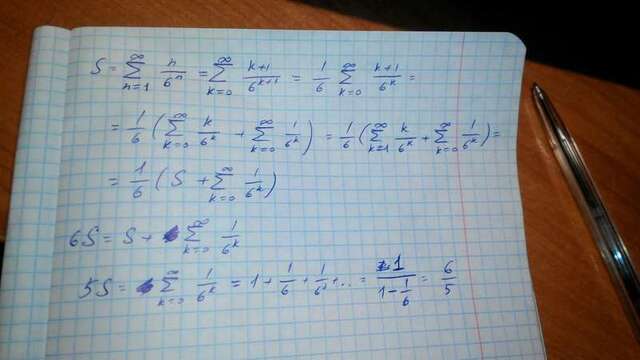 S = ∑_{n=1}^{∞} n/6^n = ∑_{k=0}^{∞} (k+1)/6^{k+1} = 1/6 ∑_{k=0}^{∞} (k+1)/6^k =
= 1/6 (∑_{k=0}^{∞} k/6^k + ∑_{k=0}^{∞} 1/6^k) = 1/6 (∑_{k=1}^{∞} k/6^k + ∑_{k=0}^{∞} 1/6^k) =
= 1/6 (S + ∑_{k=0}^{∞} 1/6^k)
6S = S + ∑_{k=0}^{∞} 1/6^k
5S = ∑_{k=0}^{∞} 1/6^k = 1 + 1/6 + 1/6² + ... = 1/(1 - 1/6) = 6/5